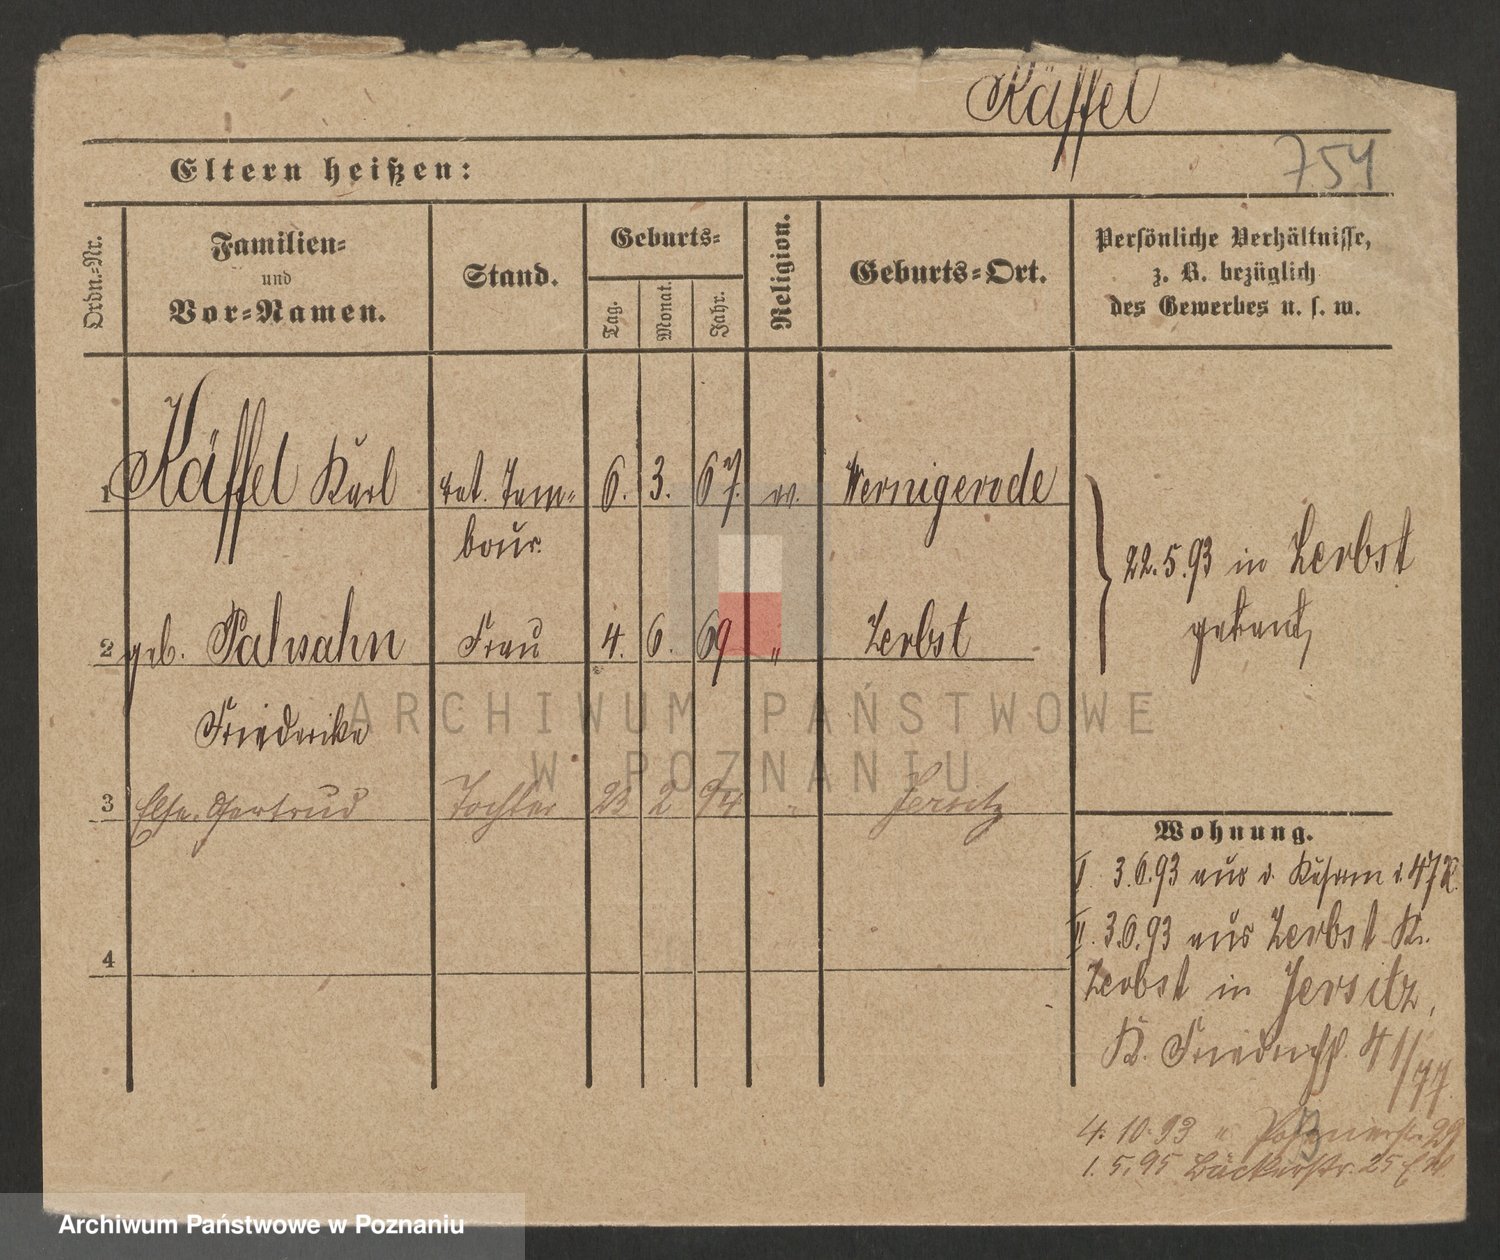 Käffel
754
Eltern heißen:
Ordn.-Nr.
Familien-
und
Vor-Namen.
Stand.
Geburts-
Tag.
Monat.
Jahr.
Religion.
Geburts-Ort.
Persönliche Verhältnisse,
z. B. bezüglich
des Gewerbes u. s. w.
1 Käffel Karl ret. Tam- 6. 3. 67. ev. Wernigerode
bour.
22.5.93 in Zerbst
getraut,
2 geb. Palusahn Frau 4. 6. 69 " Zerbst
Friederike
ARCHIWUM PAŃSTWOWE
W POZNANIU
3 Else Gertrud Tochter 23 2 94 " Jersitz
Wohnung.
I. 3.6.93 aus d. 47
II. 3.6.93 aus Zerbst Kr.
Zerbst in Jersitz,
K. Friedrichst. 41/77
4
4. 10. 93 " Posenerstr. 29
1. 5. 95 Bäckerstr. 25
Archiwum Państwowe w Poznaniu